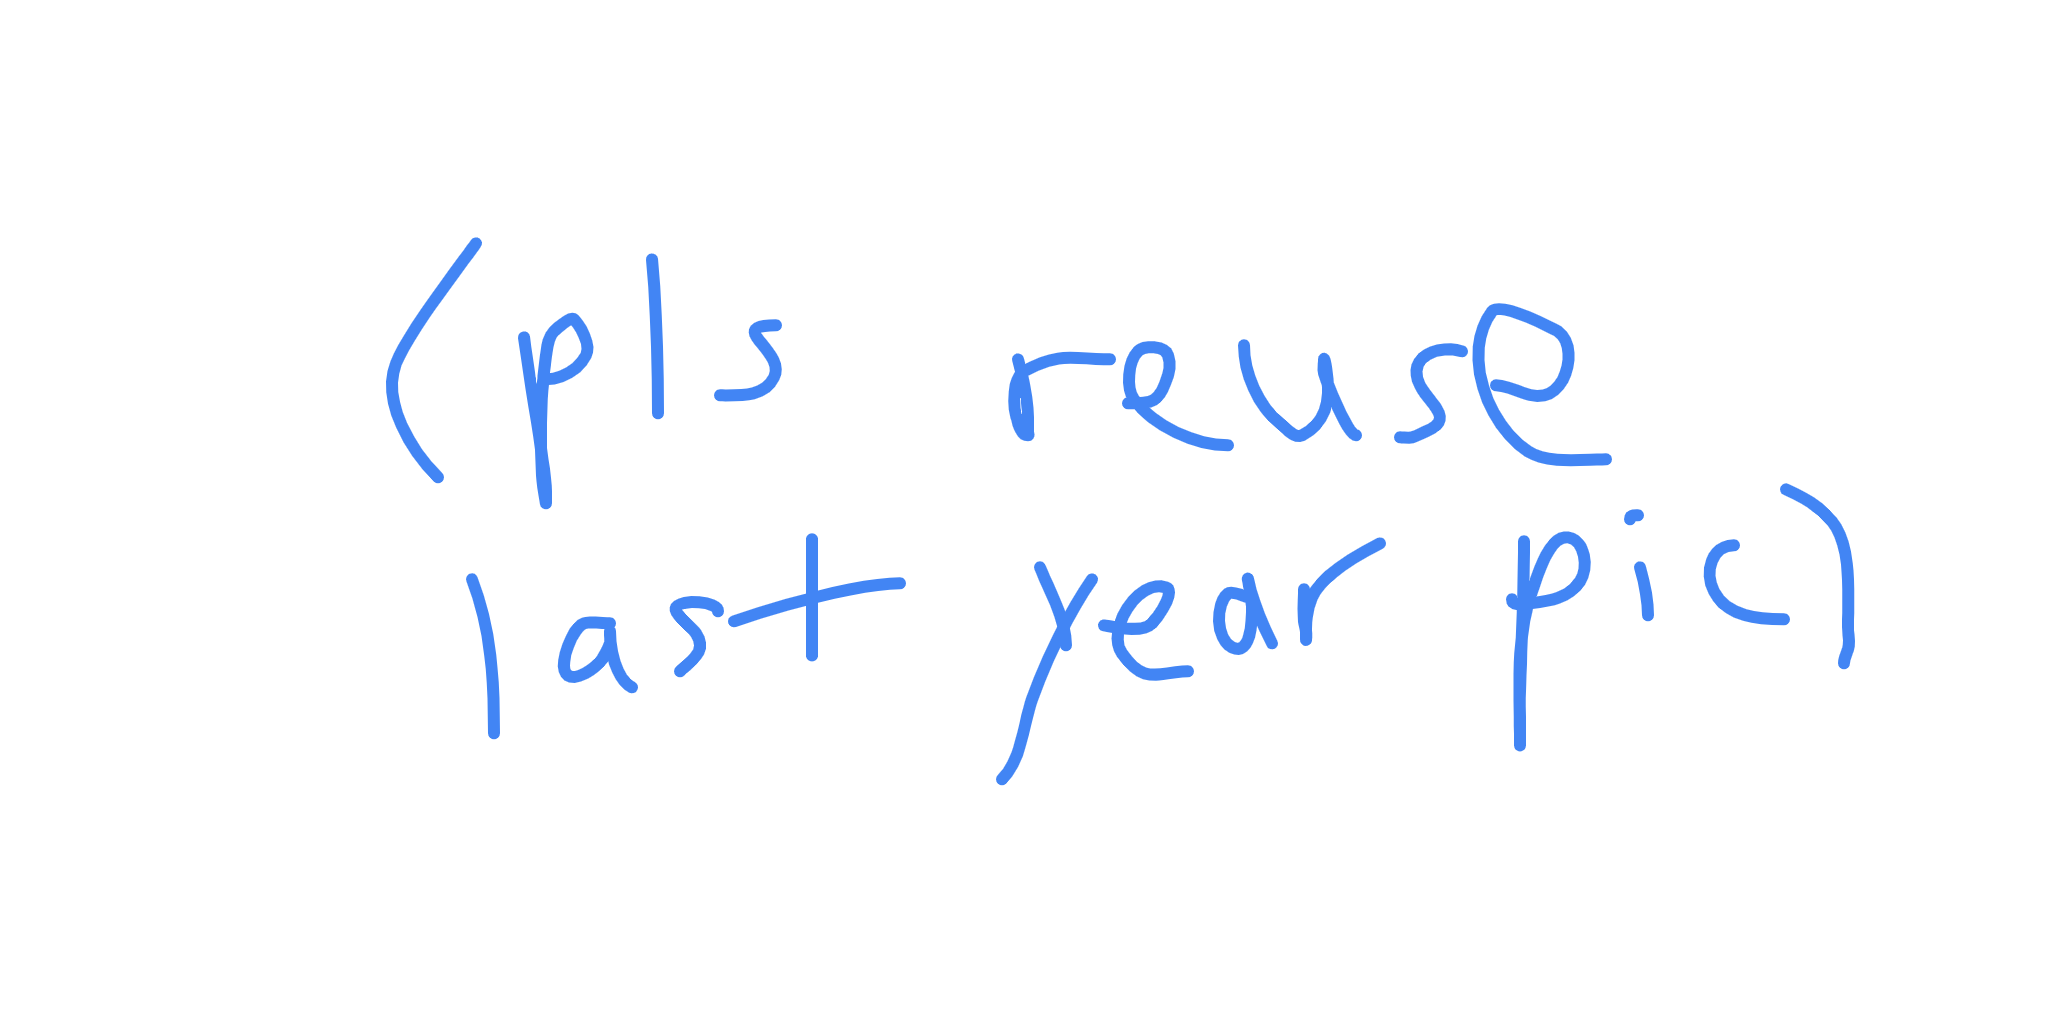 (pls reuse
last year pic)